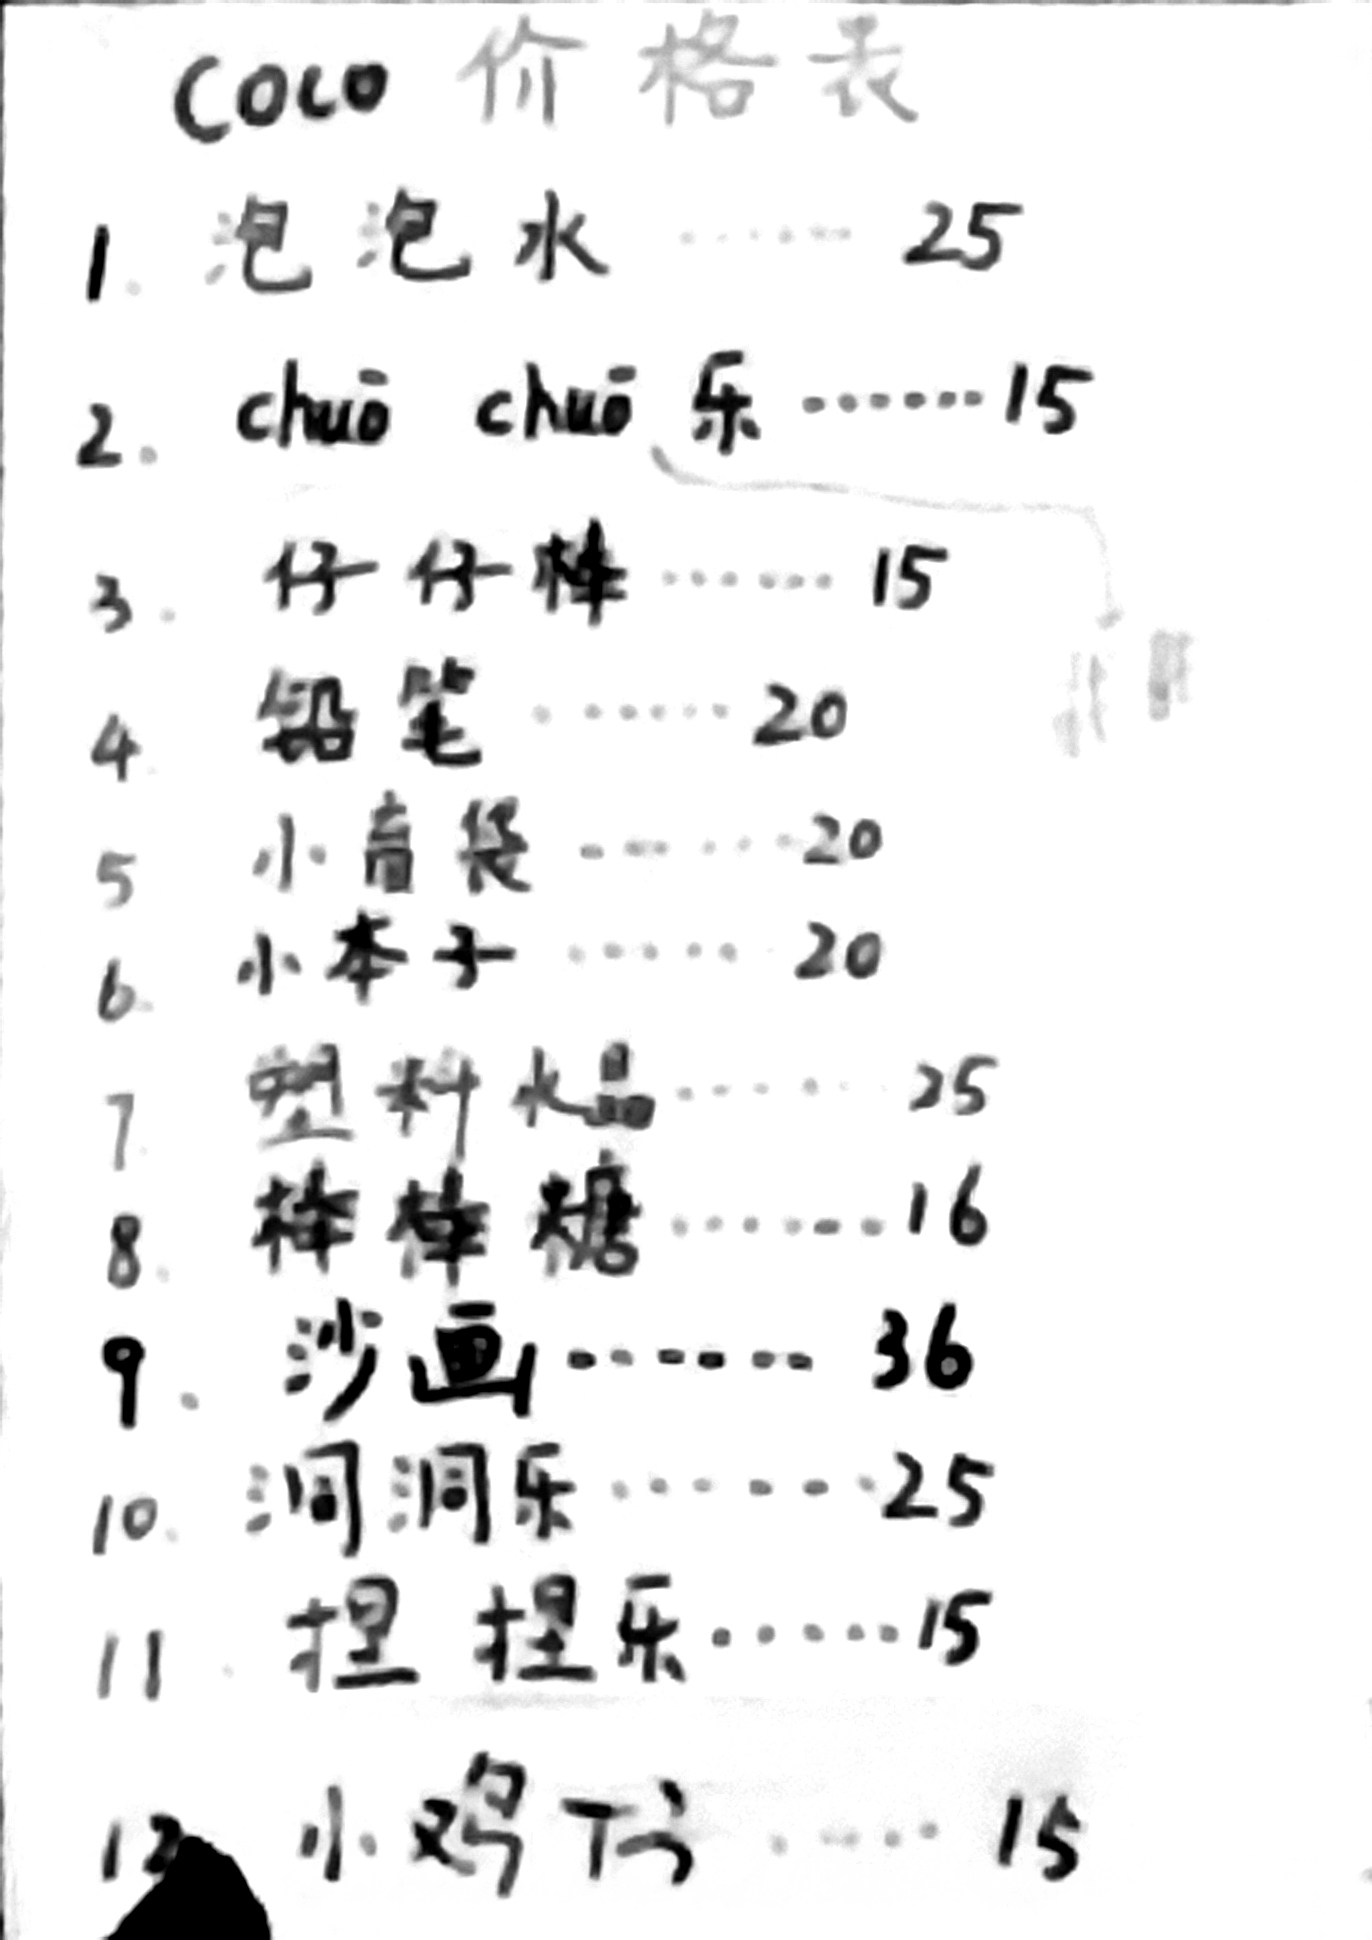 COCO 价格表
1. 泡泡水 ...... 25
2. chuō chuō 乐 ...... 15
3. 仔仔棒 ...... 15
4. 铅笔 ...... 20
5 小盲袋 ...... 20
6. 小本子 ...... 20
7. 塑料水晶 ...... 25
8. 棒棒糖 ...... 16
9. 沙画 ...... 36
10. 洞洞乐 ...... 25
11. 捏捏乐 ...... 15
12 小鸡下 ...... 15